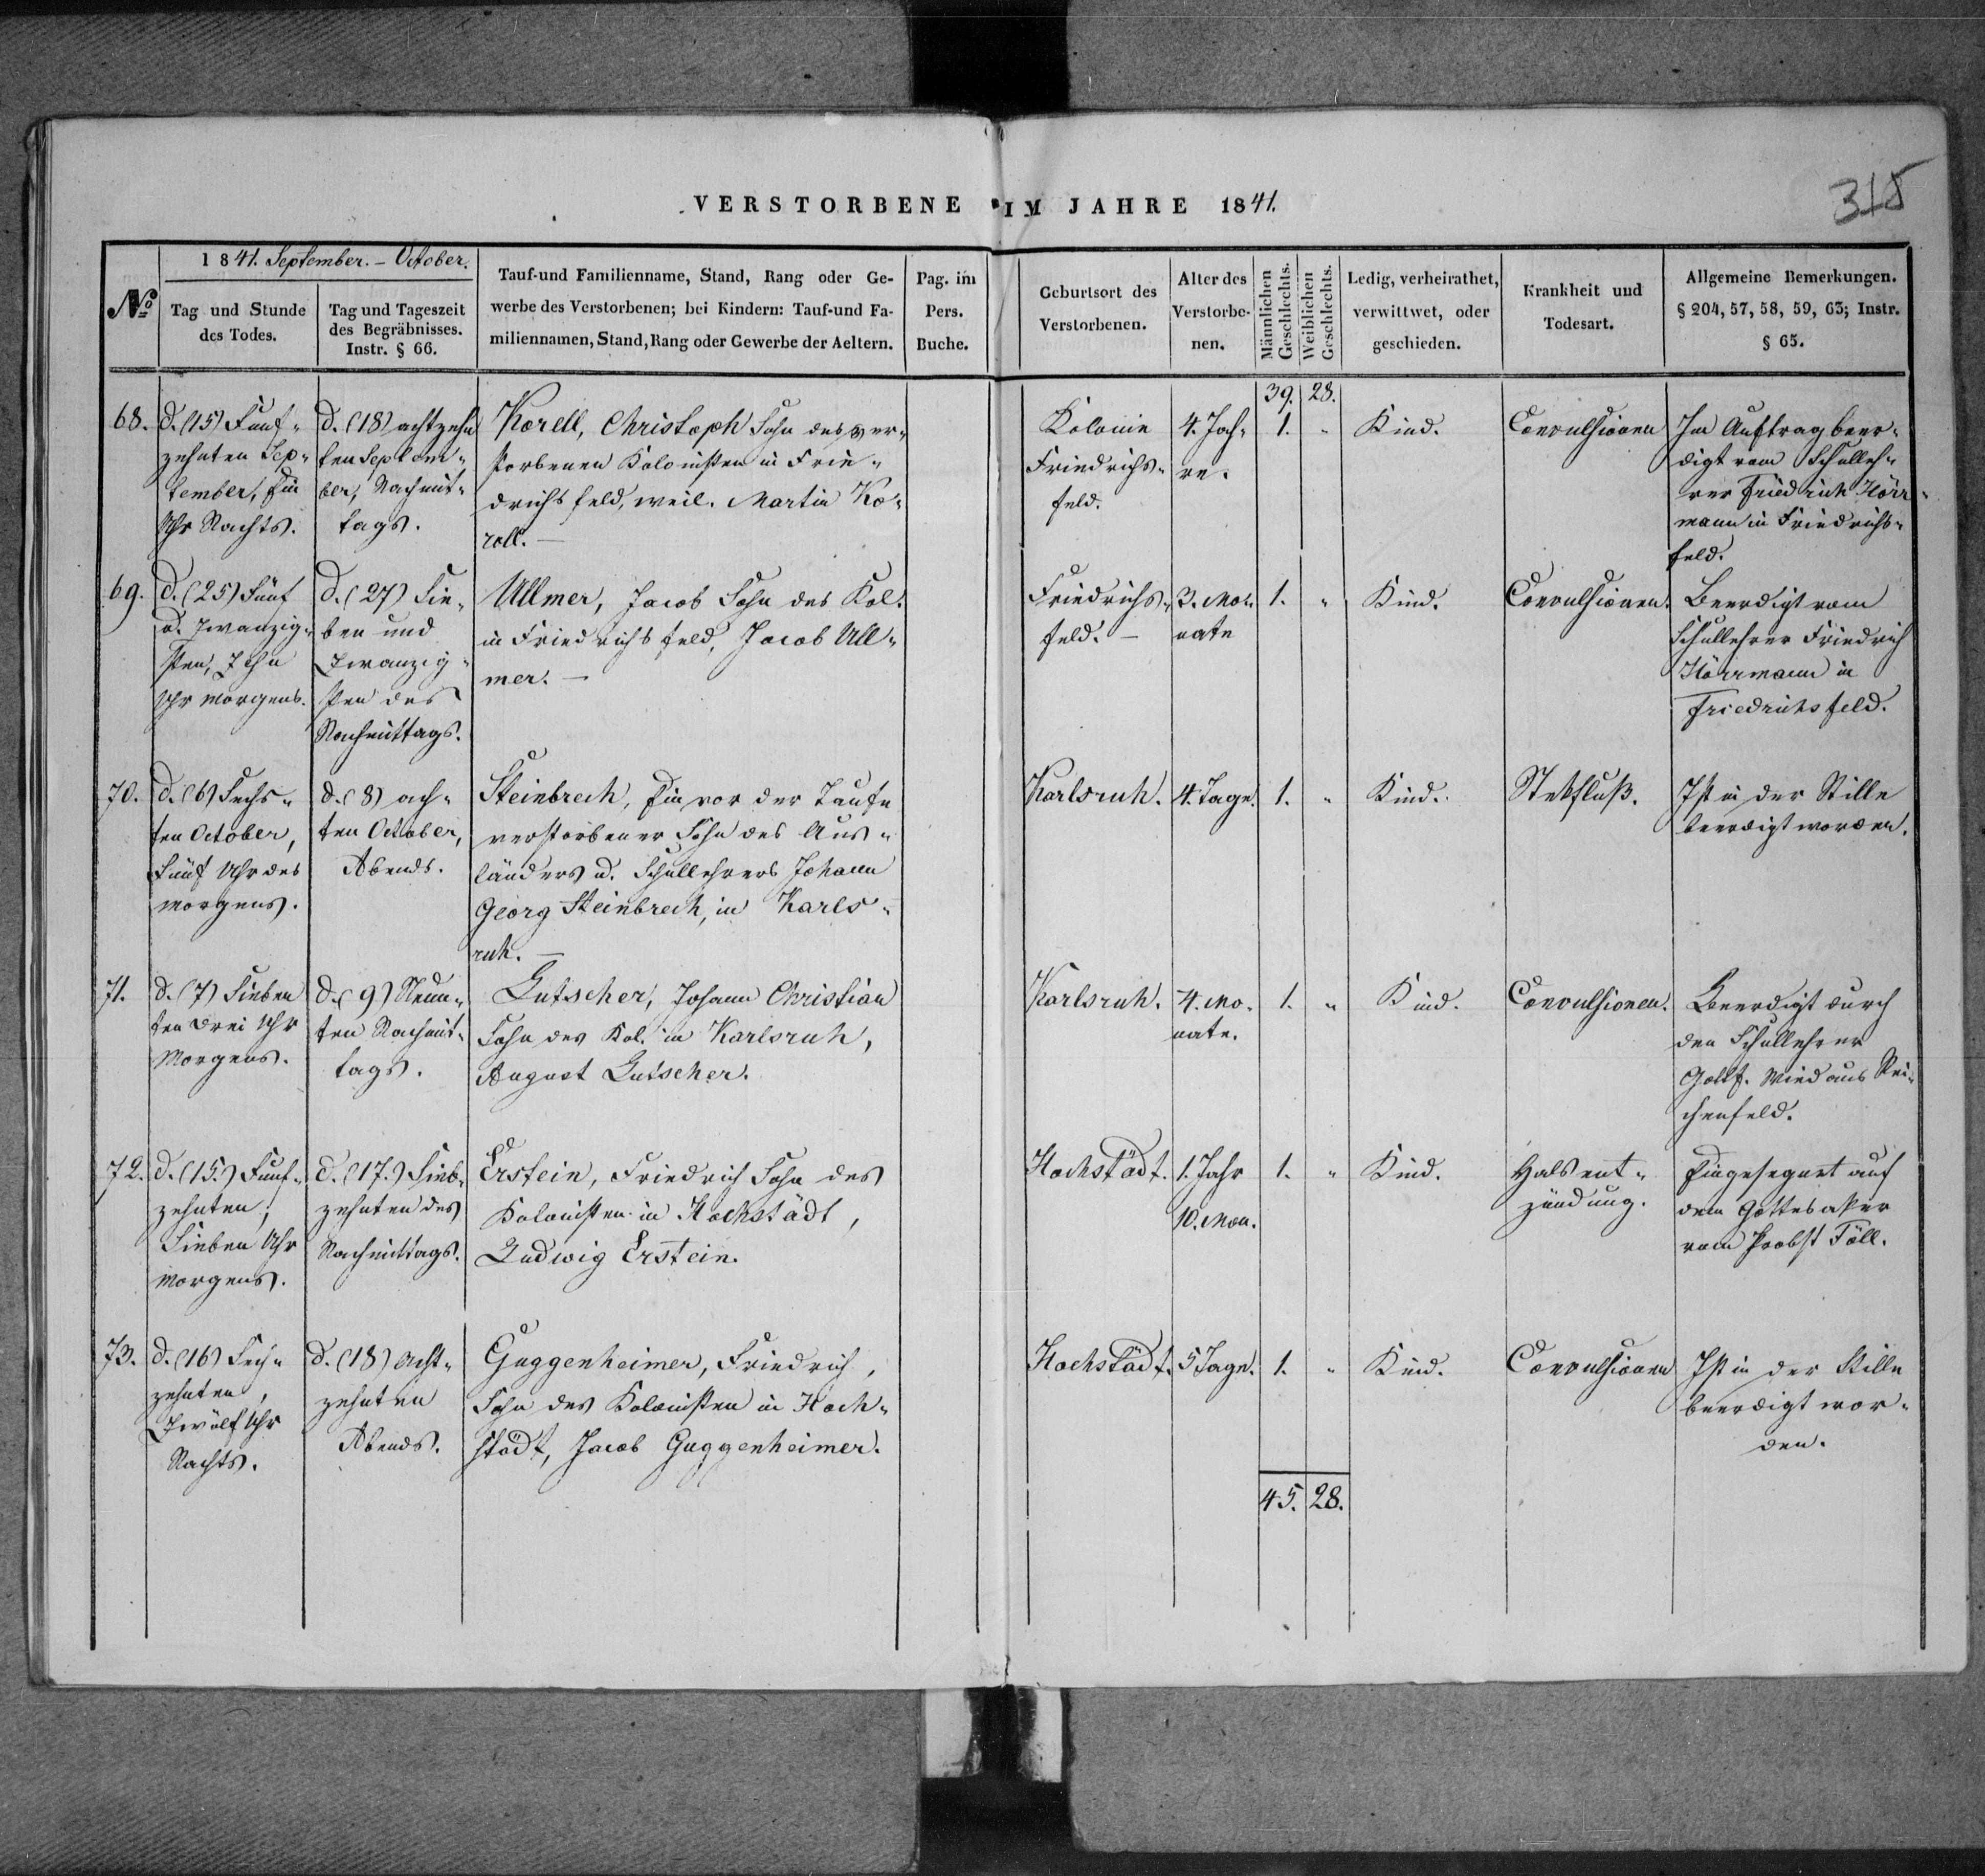 VERSTORBENE IM JAHRE 1841.
315
No
1841. September. – October.
Tag und Stunde
des Todes.
Tag und Tageszeit
des Begräbnisses.
Instr. § 66.
Tauf-und Familienname, Stand, Rang oder Ge-
werbe des Verstorbenen; bei Kindern: Tauf-und Fa-
miliennamen, Stand, Rang oder Gewerbe der Aeltern.
Pag. im
Pers.
Buche.
Geburtsort des
Verstorbenen.
Alter des
Verstorbe-
nen.
Männlichen
Geschlechts.
Weiblichen
Geschlechts.
Ledig, verheirathet,
verwittwet, oder
geschieden.
Krankheit und
Todesart.
Allgemeine Bemerkungen.
§ 204, 57, 58, 59, 63; Instr.
§ 65.
39. 28.
68.
d. (15) Fünf-
zehnten Sep-
tember, Ein
Uhr Nachts.
d. (18) achtzehn
ten Septem-
ber, Nachmit-
tags.
Korell, Christoph Sohn des ver-
storbenen Kolonisten in Frie-
drichsfeld, weil. Martin Ko-
rell. —
Kolonie
Friedrichs-
feld.
4. Jah-
re.
1. "
Kind.
Convulsionen
Im Auftrag beer-
digt vom Schulleh-
rer Friedrich Hörr-
mann in Friedrichs-
feld.
69.
d. (25) Fünf
u. Zwanzig-
sten, Zehn
Uhr Morgens.
d. (27) Sie-
ben und
Zwanzig-
sten des
Nachmittags.
Ullmer, Jacob Sohn des Kol.
in Friedrichsfeld, Jacob Ull-
mer. —
Friedrichs-
feld. —
3. Mo-
nate
1. "
Kind.
Convulsionen.
Beerdigt vom
Schullehrer Friedrich
Hörrmann in
Friedrichsfeld.
70.
d. (6) Sechs-
ten October,
Fünf Uhr des
Morgens.
d. (8) ach-
ten October,
Abends.
Steinbrech, Ein vor der Taufe
verstorbener Sohn des Aus-
länders u. Schullehrers Johann
Georg Steinbrech, in Karls-
ruh. —
Karlsruh.
4. Tage.
1. "
Kind.
Stekfluß.
Ist in der Stille
beerdigt worden.
71.
d. (7) Sieben
ten Drei Uhr
Morgens.
d. (9) Neun-
ten Nachmit-
tags.
Lutscher, Johann Christian
Sohn des Kol. in Karlsruh,
August Lutscher.
Karlsruh.
4. Mo-
nate.
1. "
Kind.
Convulsionen.
Beerdigt durch
den Schullehrer
Gottf. Wied aus Rei-
chenfeld.
72.
d. (15.) Fünf-
zehnten,
Sieben Uhr
Morgens.
d. (17.) Sieb-
zehnten des
Nachmittags.
Erstein, Friedrich Sohn des
Kolonisten in Hochstädt,
Ludwig Erstein.
Hochstädt.
1. Jahr
10. Mon.
1. "
Kind.
Halsent-
zündung.
Eingesegnet auf
dem Gottesaker
vom Probst Föll.
73.
d. (16) Sech-
zehnten,
Zwölf Uhr
Nachts.
d. (18) Acht-
zehnten
Abends.
Guggenheimer, Friedrich,
Sohn des Kolonisten in Hoch-
städt, Jacob Guggenheimer.
Hochstädt.
5 Tage.
1. "
Kind.
Convulsionen
Ist in der Stille
beerdigt wor-
den.
45. 28.